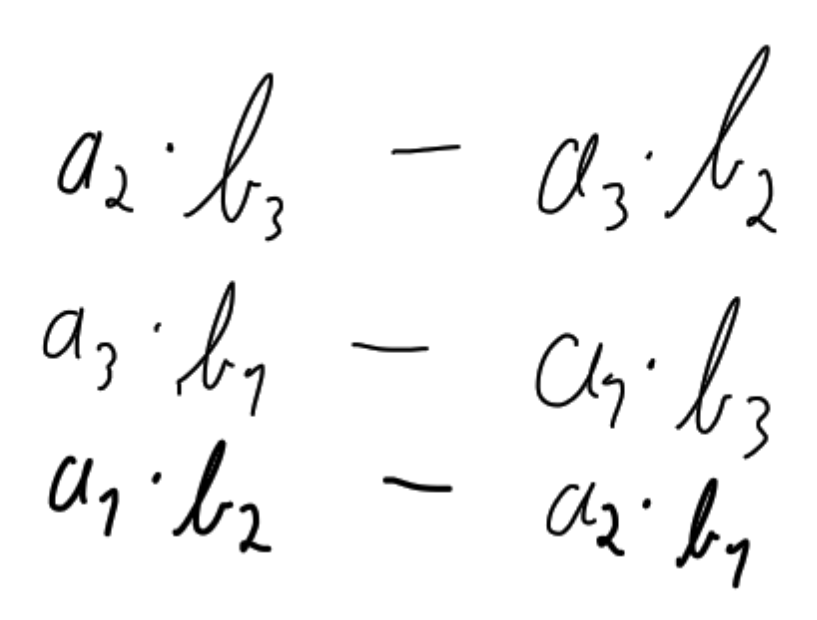 a₂ · b₃ — a₃ · b₂
a₃ · b₁ — a₁ · b₃
a₁ · b₂ — a₂ · b₁